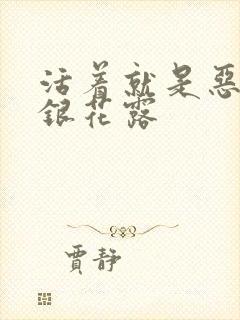 活着就是恶
銀花露
賈静